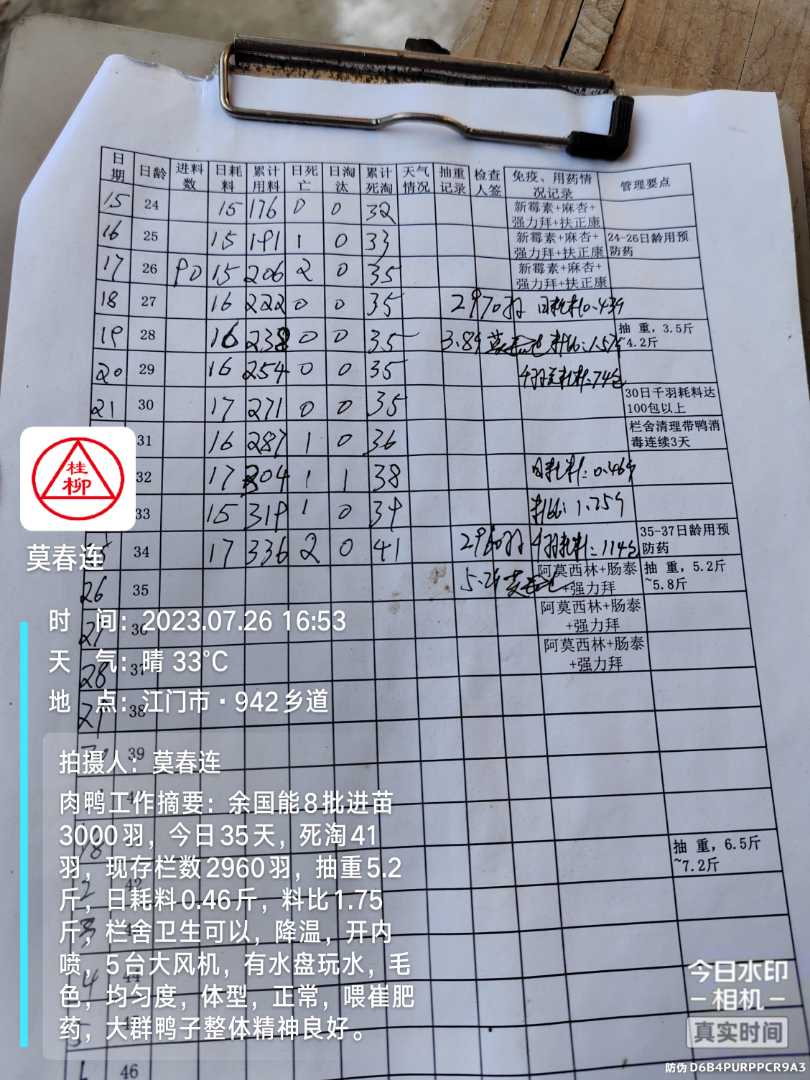 日期 日龄 进料数 日耗料 累计用料 日死亡 日淘汰 累计死淘 天气情况 抽重记录 检查人签 免疫、用药情况记录 管理要点
15 24 15 176 0 0 32 新霉素+麻杏+强力拜+扶正康
16 25 15 191 1 0 33 新霉素+麻杏+强力拜+扶正康 24-26日龄用预防药
17 26 90 15 206 2 0 35 新霉素+麻杏+强力拜+扶正康
18 27 16 222 0 0 35 2970羽 日耗料0.43斤
19 28 16 238 0 0 35 3.8斤 莫春连 料比:1.57斤 抽重,3.5斤 4.2斤
20 29 16 254 0 0 35 千羽耗料:74包
21 30 17 271 0 0 35 30日千羽耗料达100包以上
31 16 287 1 0 36 栏舍清理带鸭消毒连续3天
32 17 304 1 1 38 日耗料:0.46斤
33 15 319 1 0 39 料比:1.75斤
5 34 17 336 2 0 41 2960羽 千羽耗料:114包 35-37日龄用预防药
26 35 5.2斤 阿莫西林+肠泰+强力拜 抽重,5.2斤~5.8斤
27 36 阿莫西林+肠泰+强力拜
28 37 阿莫西林+肠泰+强力拜
29 38
39
抽重,6.5斤~7.2斤
2 42
3
4 44
5
6 46
桂柳
莫春连
时 间：2023.07.26 16:53
天 气：晴 33℃
地 点：江门市·942乡道
拍摄人：莫春连
肉鸭工作摘要：余国能8批进苗
3000羽，今日35天，死淘41
羽，现存栏数2960羽，抽重5.2
斤，日耗料0.46斤，料比1.75
斤，栏舍卫生可以，降温，开内
喷，5台大风机，有水盘玩水，毛
色，均匀度，体型，正常，喂崔肥
药，大群鸭子整体精神良好。
今日水印
相机
真实时间
防伪 D6B4PURPPCR9A3